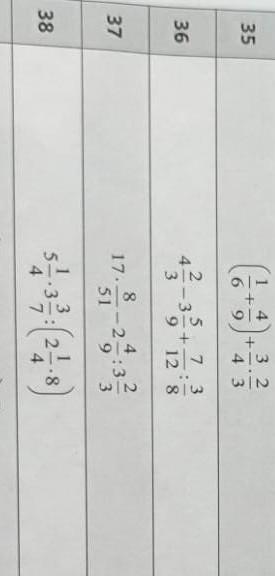 35 (1/6 + 4/9) + 3/4 · 2/3
36 4 2/3 − 3 5/9 + 7/12 : 3/8
37 17 · 8/51 − 2 4/9 : 3 2/3
38 5 1/4 · 3 3/7 : (2 1/4 · 8)